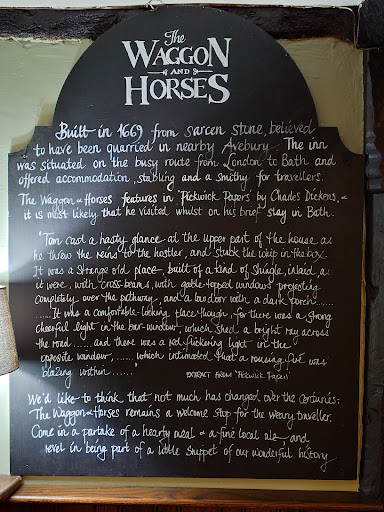 The
WAGGON
AND
HORSES
Built in 1669 from sarcen stone, believed
to have been quarried in nearby Avebury. The inn
was situated on the busy route from London to Bath and
offered accommodation, stabling and a smithy for travellers.
The Waggon & Horses features in Pickwick Papers by Charles Dickens, &
it is most likely that he visited whilst on his brief stay in Bath.
"Tom cast a hasty glance at the upper part of the house as
he threw the reins to the hostler, and stuck the whip in the box.
It was a strange old place, built of a kind of shingle, inlaid, as
it were, with cross-beams, with gable-topped windows projecting
completely over the pathway, and a low door with a dark porch......
......It was a comfortable-looking place though, for there was a strong
cheerful light in the bar-window, which shed a bright ray across
the road ...... and there was a red flickering light in the
opposite window, ...... which intimated that a rousing fire was
blazing within ......"
EXTRACT FROM 'Pickwick Papers'
We'd like to think that not much has changed over the centuries:
The Waggon & Horses remains a welcome stop for the weary traveller.
Come in & partake of a hearty meal & a fine local ale, and
revel in being part of a little snippet of our wonderful history.